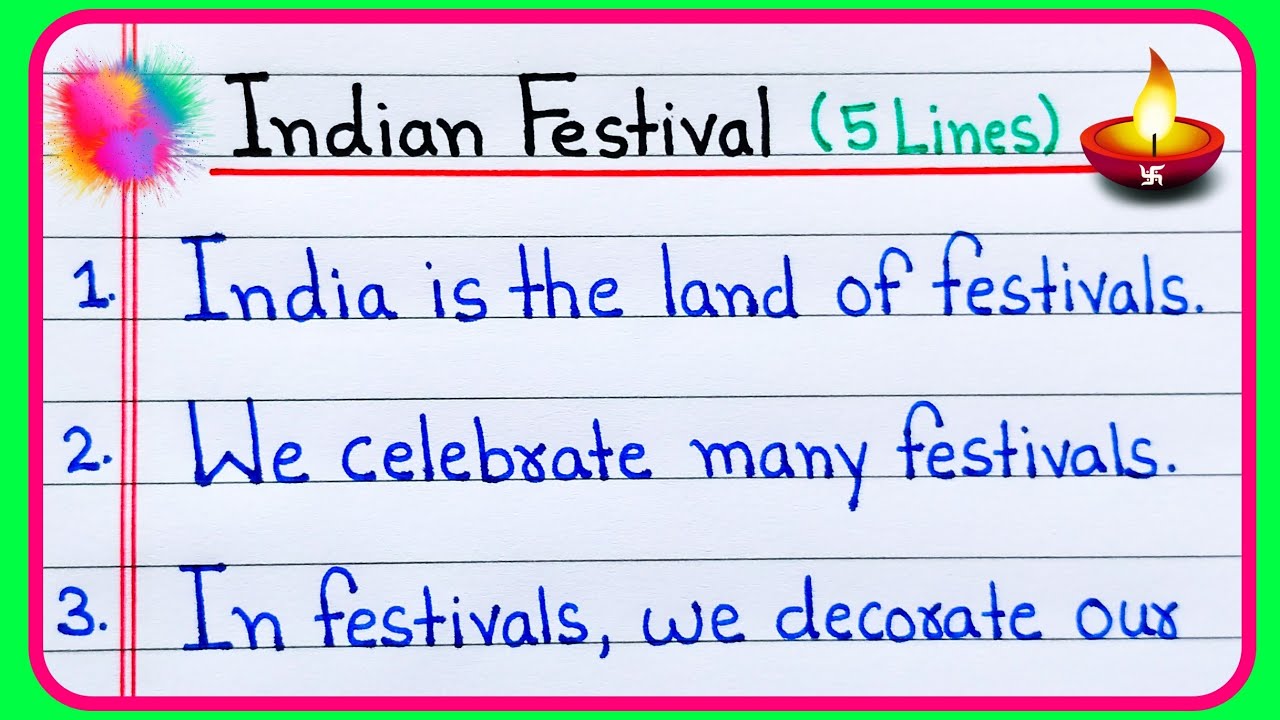 Indian Festival (5 Lines)
1. India is the land of festivals.
2. We celebrate many festivals.
3. In festivals, we decorate our